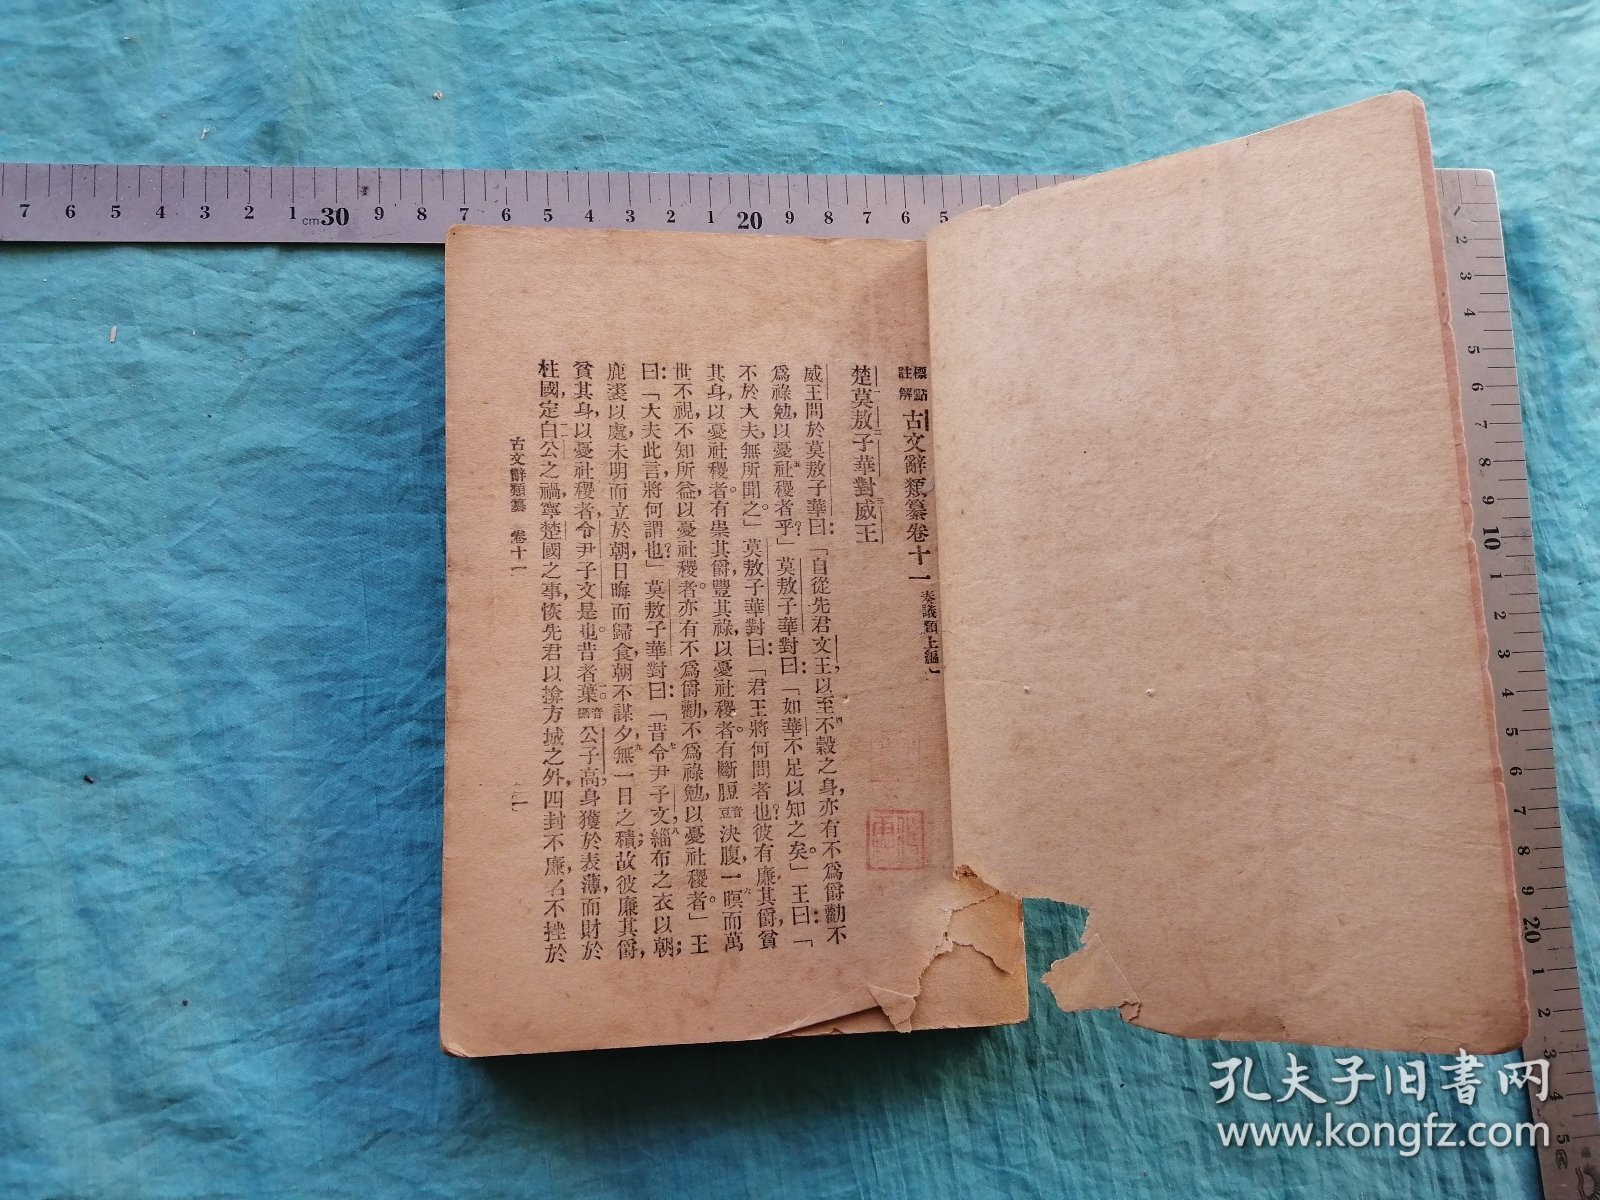 標點註解 古文辭類纂卷十一 奏議類上編一
楚莫敖子華對威王
威王問於莫敖子華曰：「自從先君文王，以至不穀之身，亦有不爲爵勸，不
爲祿勉，以憂社稷者乎？」莫敖子華對曰：「如華不足以知之矣。」王曰：「
不於大夫，無所聞之。」莫敖子華對曰：「君王將何問者也？彼有廉其爵，貧
其身，以憂社稷者。有崇其爵，豐其祿，以憂社稷者。有斷脰音豆決腹，一瞑而萬
世不視，不知所益，以憂社稷者。亦有不爲爵勸，不爲祿勉，以憂社稷者。」王
曰：「大夫此言，將何謂也？」莫敖子華對曰：「昔令尹子文，緇布之衣以朝；
鹿裘以處，未明而立於朝，日晦而歸食，朝不謀夕，無一日之積；故彼廉其爵，
貧其身，以憂社稷者，令尹子文是也。昔者葉音攝公子高，身獲於表薄，而財於
柱國，定白公之禍，寧楚國之事，恢先君以揜方城之外，四封不廉，名不挫於
古文辭類纂 卷十一
一
孔夫子旧書网
www.kongfz.com
7 6 5 4 3 2 1 cm 30 9 8 7 6 5 4 3 2 1 20 9 8 7 6 5
2 3 4 5 6 7 8 9 10 1 2 3 4 5 6 7 8 9 20 1 2 3 4 5